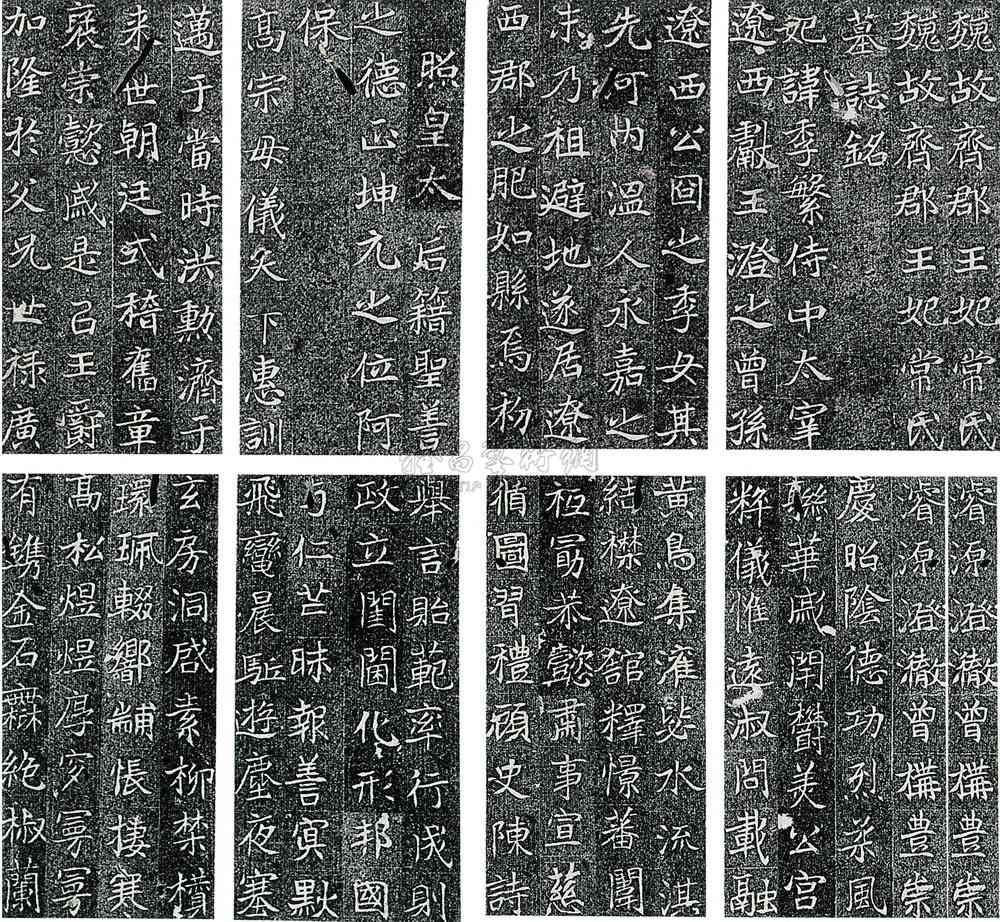 魏故齊郡王妃常氏
魏故齊郡王妃常氏
墓誌銘
妃諱季繁侍中太宰
遼西獻王澄之曾孫
遼西公囧之季女其
先河内溫人永嘉之
末乃祖避地遂居遼
西郡之肥如縣焉初
昭皇太后籍聖善
之德正坤元之位阿
保
高宗母儀天下惠訓
邁于當時洪勳濟于
来世朝廷式稽舊章
襃崇懿戚是㠯王爵
加隆於父兄世祿廣
睿源澄澈曾構豊崇
睿源澄澈曾構豊崇
慶昭陰德功烈采風
聯華戚閈欝美公宫
粹儀惟遠淑問載融
黄鳥集灌毖水流淇
結襟遼舘釋憬蕃闈
祗勗恭懿肅事宣慈
循圖習禮顧史陳詩
舉言貽範率行成則
政立閨閫化形邦國
与仁芒昧報善冥默
飛鸞晨駈逰塵夜塞
玄房洞啓素柳禁欑
環珮輟響黼悵棲寒
髙松煜煜厚穸㝠㝠
有鐫金石靡絶椒蘭